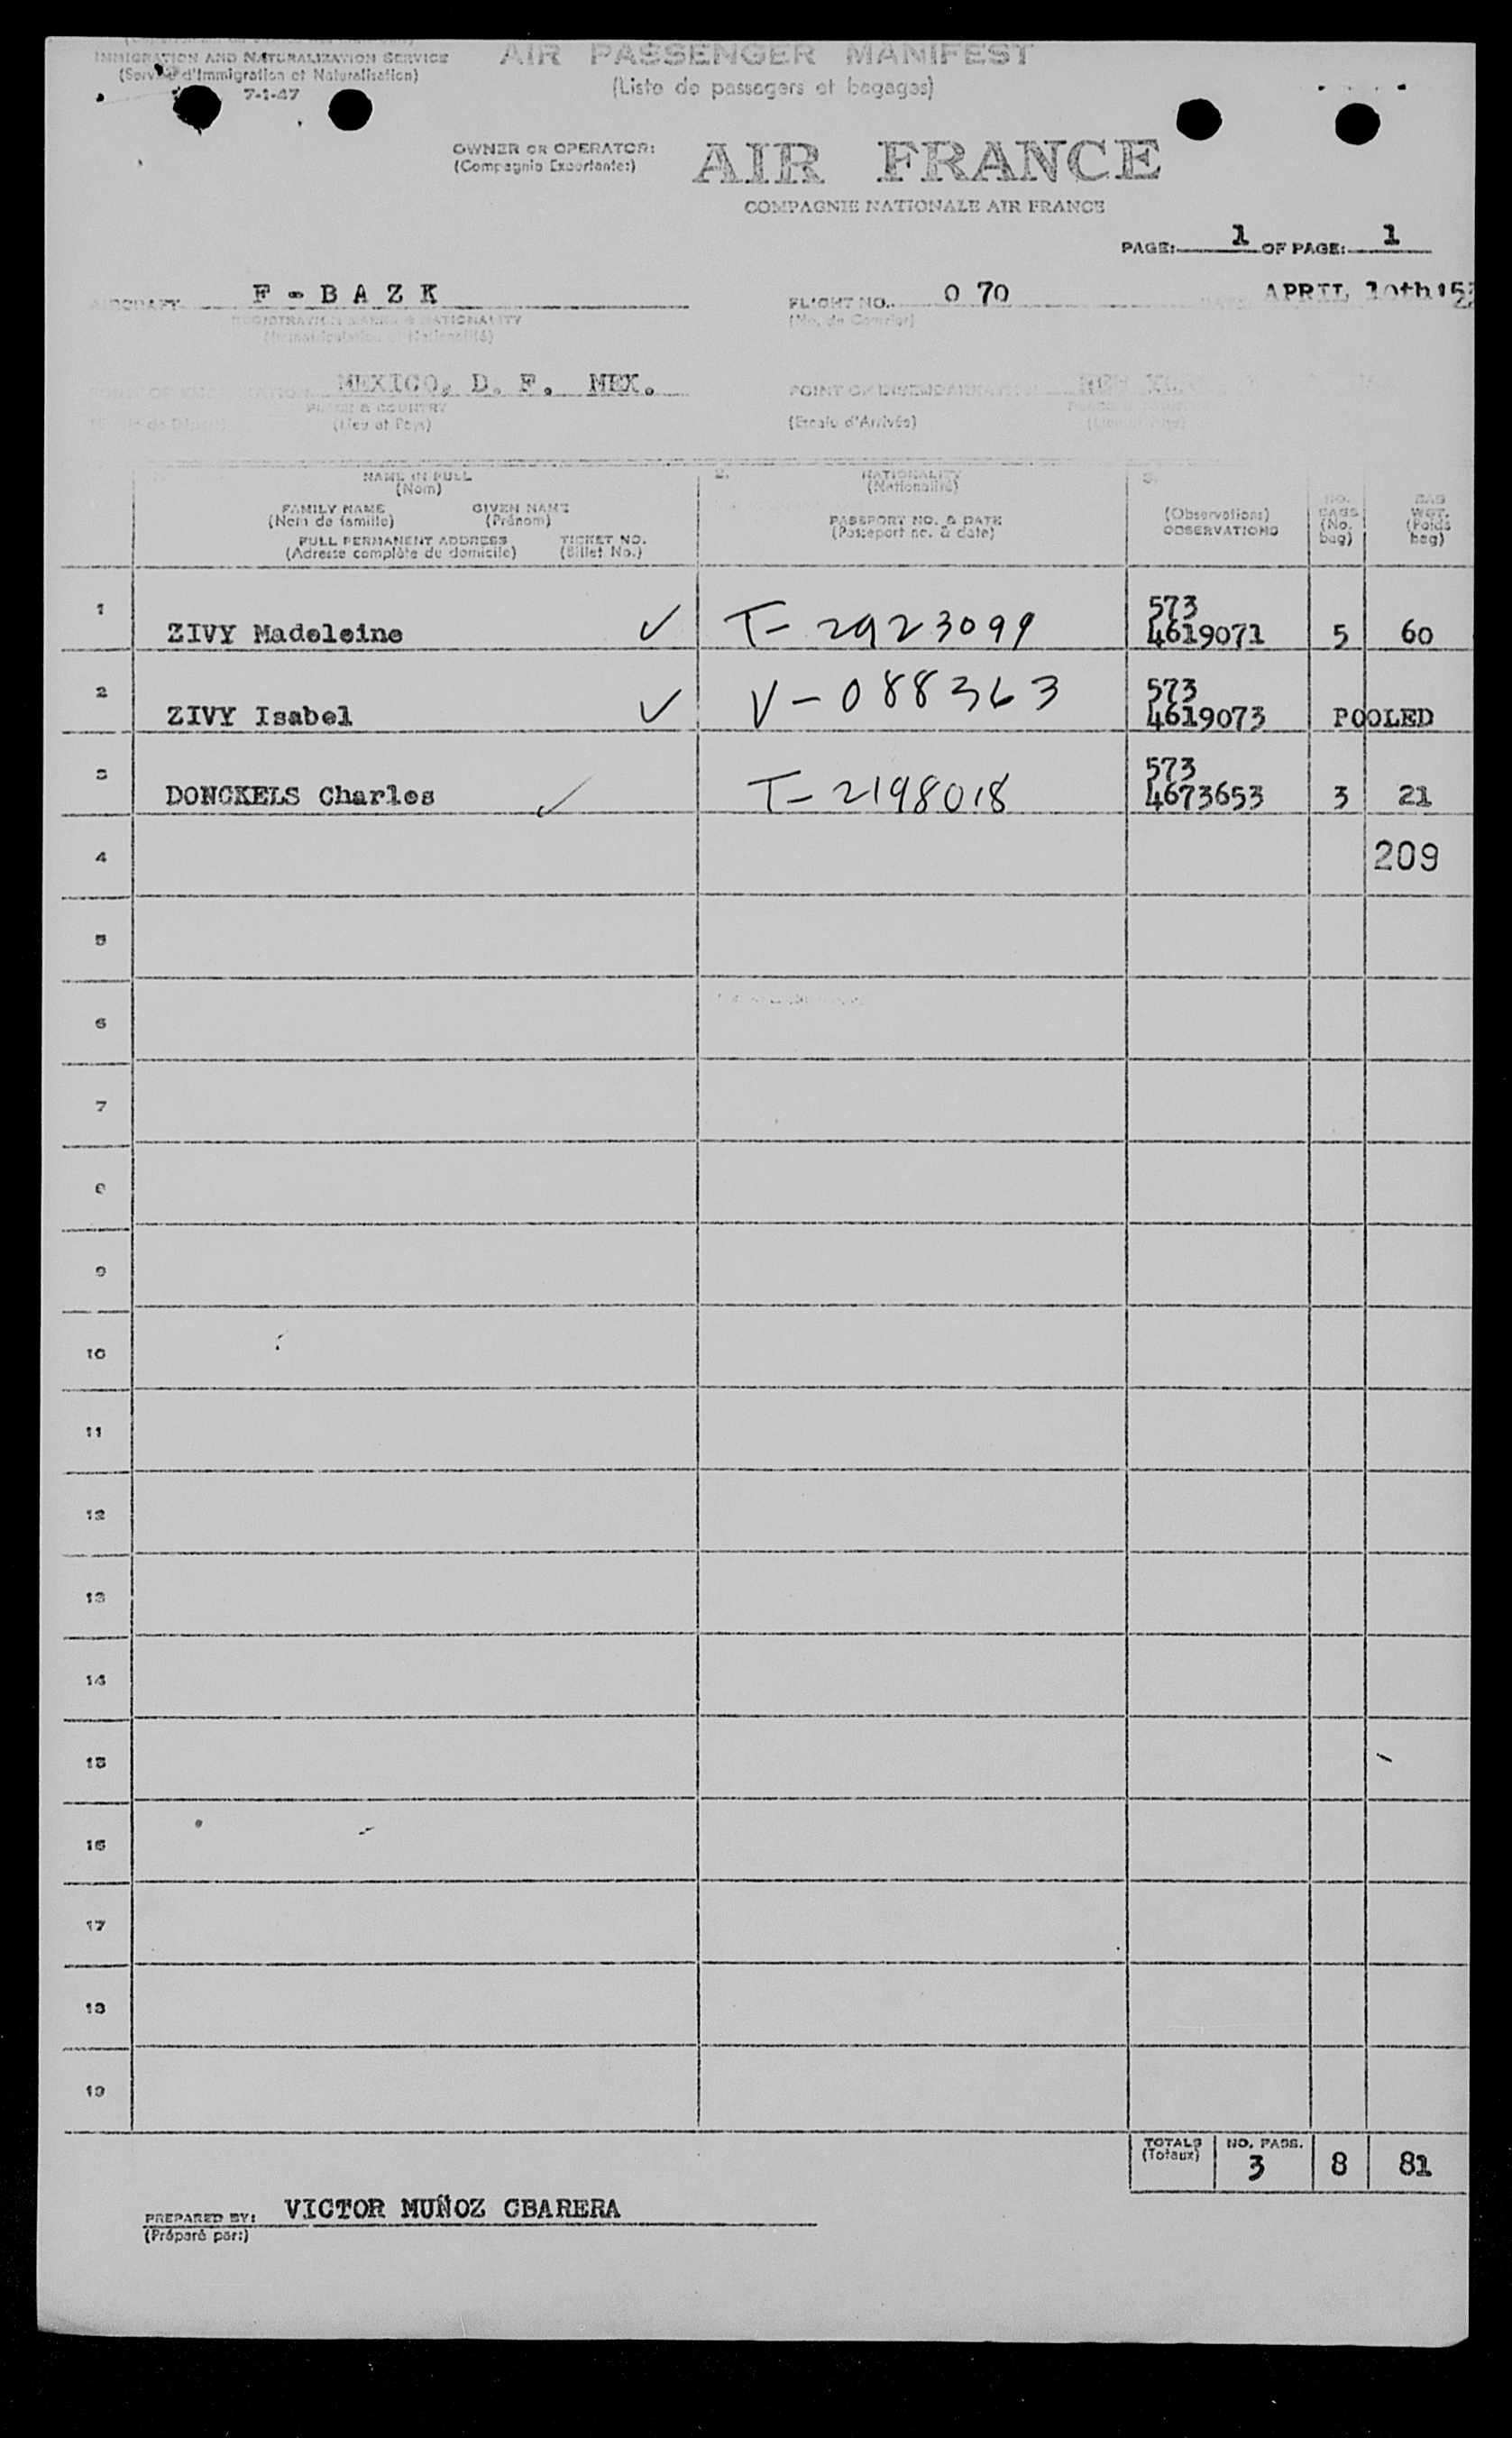 IMMIGRATION AND NATURALIZATION SERVICE
(Service d'Immigration et Naturalisation)
7-1-47
AIR PASSENGER MANIFEST
(Liste de passagers et bagages)
OWNER OR OPERATOR:
(Compagnie Exportante:)
AIR FRANCE
COMPAGNIE NATIONALE AIR FRANCE
PAGE: 1 OF PAGE: 1
AIRCRAFT F - B A Z K
REGISTRATION MARKS & NATIONALITY
(Immatriculation et Nationalité)
FLIGHT NO. 0 70
(No. de Courrier)
APRIL 10th
MEXICO, D. F. MEX.
PLACE & COUNTRY
(Lieu et Pays)
POINT OF DISEMBARKATION
(Escale d'Arrivée)
NAME IN FULL
(Nom)
FAMILY NAME GIVEN NAME
(Nom de famille) (Prénom)
FULL PERMANENT ADDRESS TICKET NO.
(Adresse complète du domicile) (Billet No.)
2. NATIONALITY
(Nationalité)
PASSPORT NO. & DATE
(Passeport no. & date)
3.
(Observations)
OBSERVATIONS
NO. BAGS (No. bag)
BAG WGT. (Poids bag)
1 ZIVY Madeleine ✓ T-2923099 573 4619071 5 60
2 ZIVY Isabel ✓ V-088363 573 4619073 POOLED
3 DONCKELS Charles ✓ T-2198018 573 4673653 3 21
4 209
5
6
7
8
9
10
11
12
13
14
15
16
17
18
19
TOTALS (Totaux) NO. PASS. 3 8 81
PREPARED BY: VICTOR MUÑOZ CBARERA
(Préparé par:)